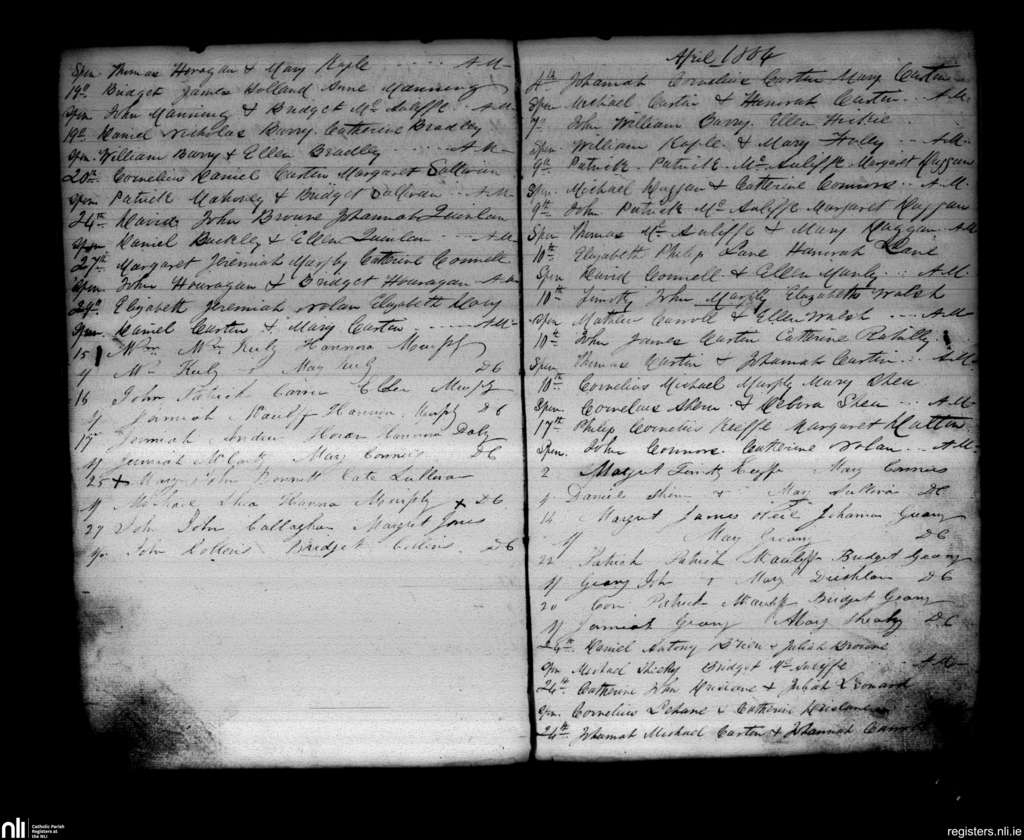 Spon. Thomas Horagan & Mary Keefe A.M.
19th Bridget James Holland Anne Manning
Spon. John Manning & Bridget Mc Auliffe A.M.
19th Daniel Nicholas Barry Catherine Bradley
Spon. William Barry & Ellen Bradley A.M.
20th Cornelius Daniel Curtin Margaret Sullivan
Spon. Patrick Mahoney & Bridget Sullivan A.M.
24th David John Browne Johannah Quinlan
Spon. Daniel Buckley & Ellen Quinlan A.M.
27th Margaret Jeremiah Murphy Catherine Connell
Spon. John Houragan & Bridget Houragan A.M.
29th Elizabeth Jeremiah Nolan Elizabeth
Spon. Daniel Curtin & Mary Curtin A.M.
15 Wm Wm Hannora Murphy
Wm & Mary DC
16 John Patrick Ellen Murphy
Jeremiah Hannora Murphy DC
17 Jeremiah Andrew Horan Hannora Daly
Jeremiah McCarty Mary Connors DC
25 Mary John Bennett Cate Sullivan
Shea Hanna Murphy DC
27 John John Callaghan Margret Jones
John Bridget Collins DC
April 1864
4th Johannah Cornelius Curtin Mary Curtin
Spon. Michael Curtin & Hanorah Curtin A.M.
7th John William Barry Ellen Hickie
Spon. William & Mary A.M.
9th Patrick Patrick Mc Auliffe Margaret Duggan
Spon. Michael Duggan & Catherine Connors A.M.
9th John Patrick Mc Auliffe Margaret Duggan
Spon. Thomas Mc Auliffe & Mary Duggan A.M.
10th Elizabeth Philip Lane Hanorah Lane
Spon. David Connell & Ellen Manly A.M.
10th Timothy John Murphy Elizabeth Walsh
Spon. Mathew Carroll & Ellen Walsh A.M.
10th John James Curtin Catherine
Spon. Thomas Curtin & Johannah Curtin A.M.
10th Cornelius Michael Murphy Mary Shea
Spon. Cornelius Shea & Debora Shea A.M.
17th Philip Cornelius Keeffe Margaret
Spon. John Connors Catherine Nolan A.M.
2 Margret Timothy Keeffe Mary Connors
Daniel Shea & Mary Sullivan DC
14 Margret James Johanna Geany
Mary Geany DC
22 Patrick Patrick Mcauliffe Bridget Geany
Geany John & Mary DC
20 Con Patrick Mcauliffe Bridget Geany
Jeremiah Geany Mary Sheahy DC
24th Daniel & Julia Browne
Spon. Michael Sheehy Bridget Mc Auliffe A.M.
24th Catherine John & Julia Leonard
Spon. Cornelius Lehane & Catherine
24th Johannah Michael Curtin & Johannah
nli Catholic Parish
Registers at
the NLI
registers.nli.ie